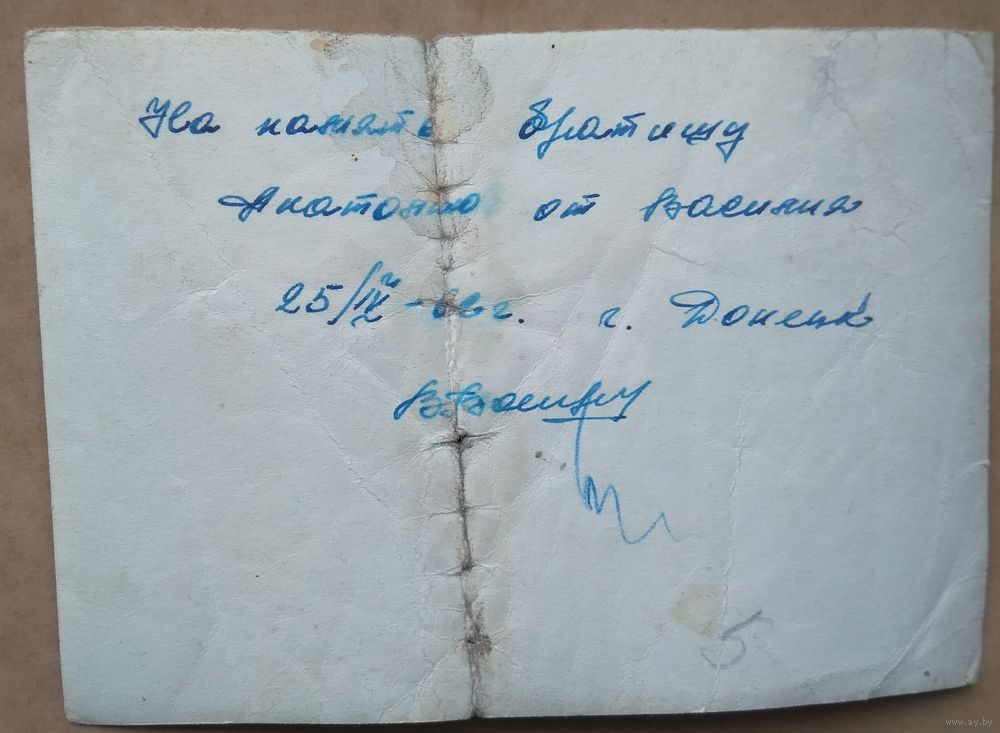 На память братишу
Анатолию от Василия
25/IV-66г. г. Донецк
5
www.ay.by